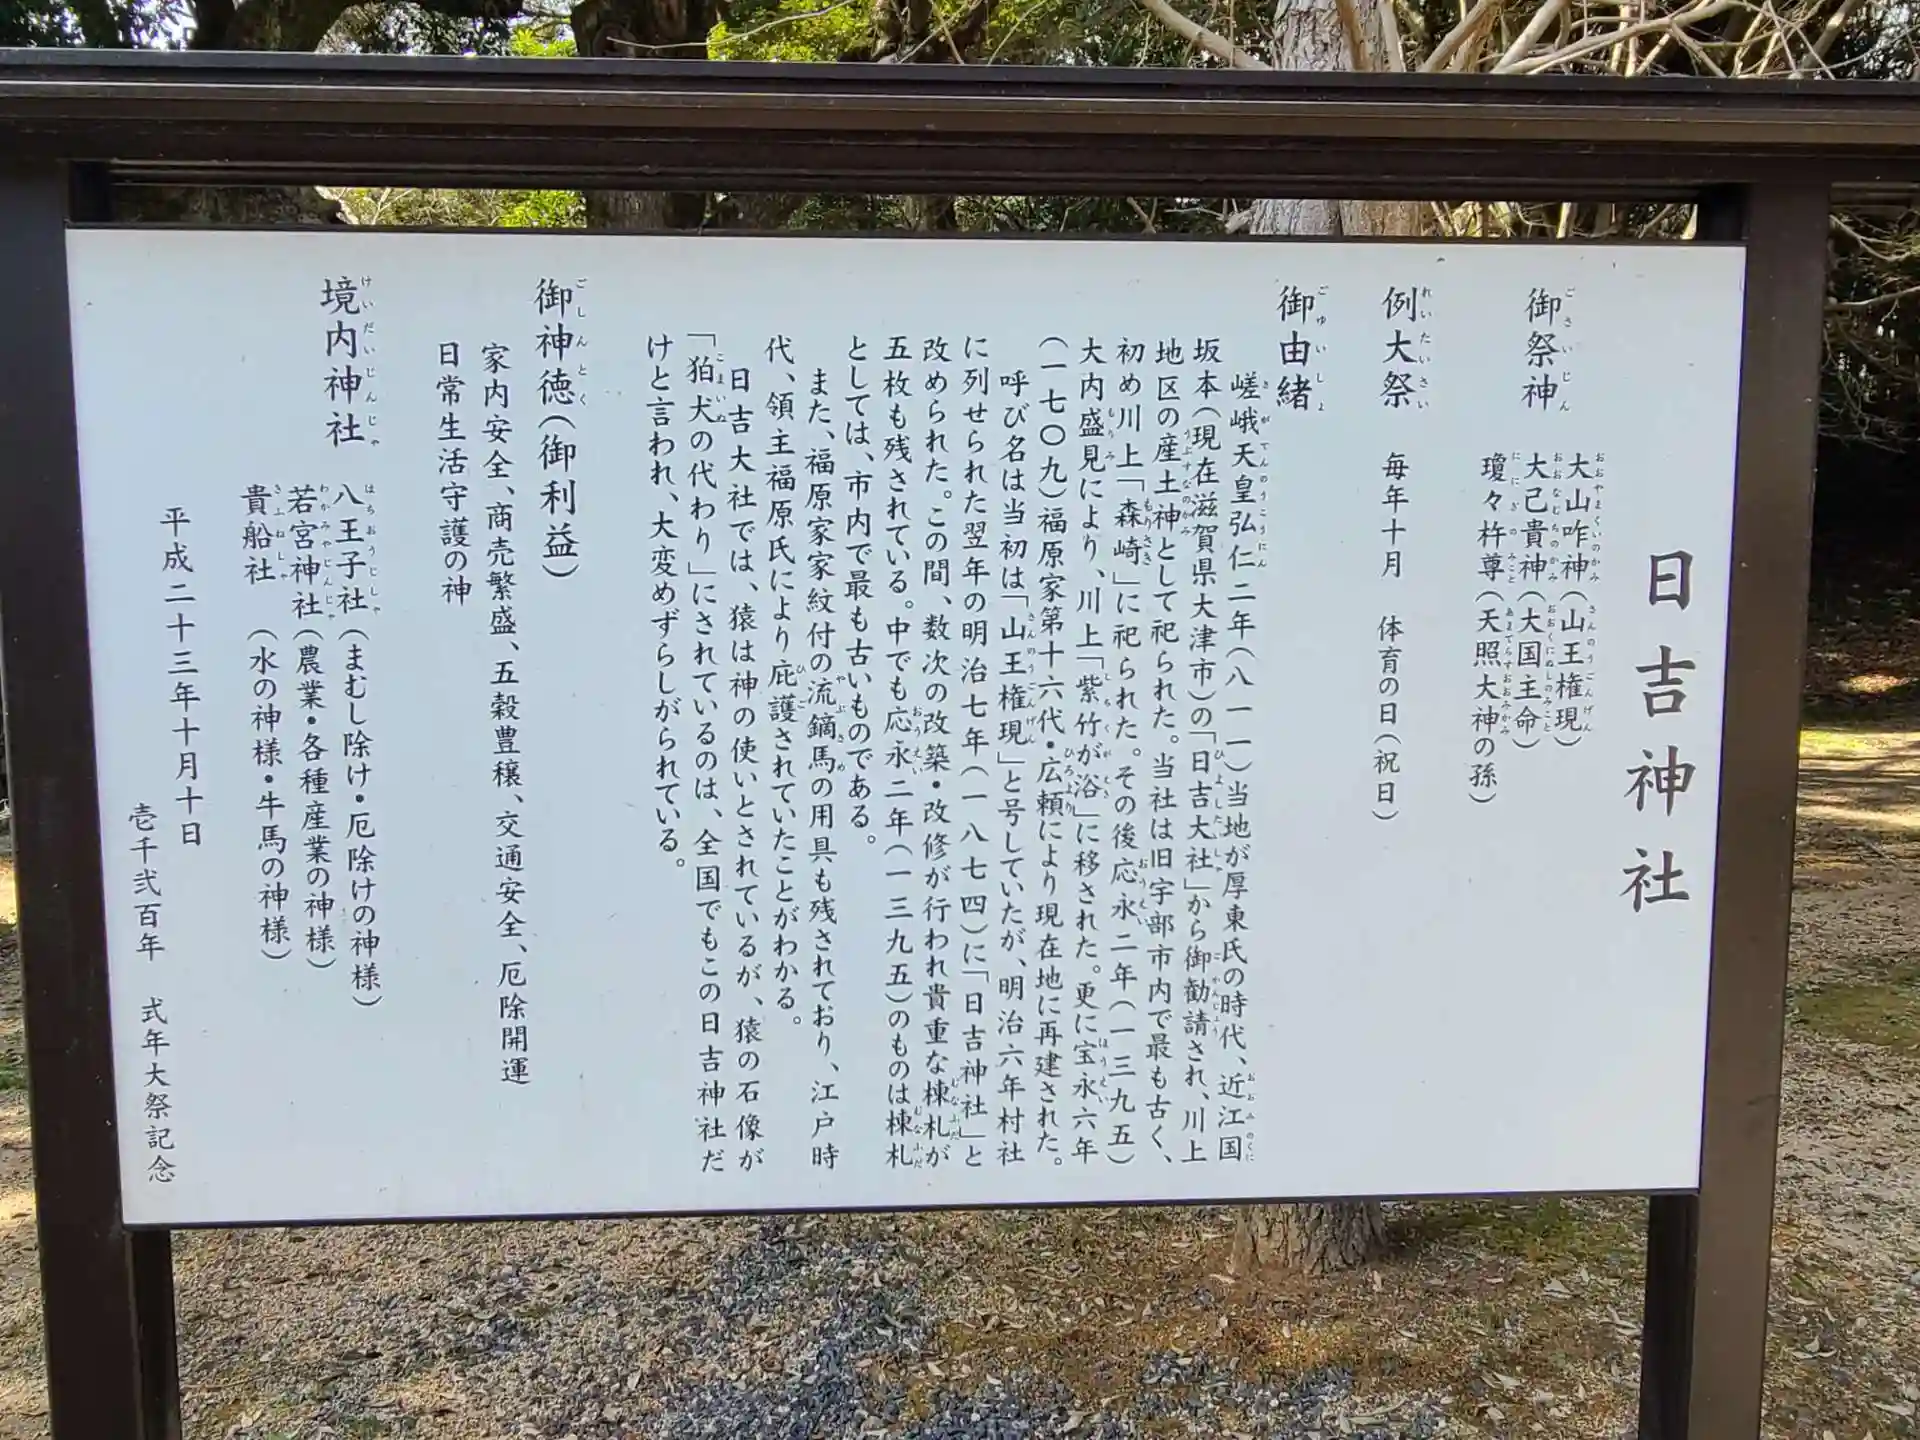 日吉神社
御祭神 大山咋神(山王権現)
大己貴神(大国主命)
瓊々杵尊(天照大神の孫)
例大祭 毎年十月 体育の日(祝日)
御由緒
嵯峨天皇弘仁二年(八一一)当地が厚東氏の時代、近江国
坂本(現在滋賀県大津市)の「日吉大社」から御勧請され、川上
地区の産土神として祀られた。当社は旧宇部市内で最も古く、
初め川上「森崎」に祀られた。その後応永二年(一三九五)
大内盛見により、川上「紫竹が浴」に移された。更に宝永六年
(一七〇九)福原家第十六代・広頼により現在地に再建された。
呼び名は当初は「山王権現」と号していたが、明治六年村社
に列せられた翌年の明治七年(一八七四)に「日吉神社」と
改められた。この間、数次の改築・改修が行われ貴重な棟札が
五枚も残されている。中でも応永二年(一三九五)のものは棟札
としては、市内で最も古いものである。
また、福原家家紋付の流鏑馬の用具も残されており、江戸時
代、領主福原氏により庇護されていたことがわかる。
日吉大社では、猿は神の使いとされているが、猿の石像が
「狛犬の代わり」にされているのは、全国でもこの日吉神社だ
けと言われ、大変めずらしがられている。
御神徳(御利益)
家内安全、商売繁盛、五穀豊穣、交通安全、厄除開運
日常生活守護の神
境内神社 八王子社(まむし除け・厄除けの神様)
若宮神社(農業・各種産業の神様)
貴船社 (水の神様・牛馬の神様)
平成二十三年十月十日
壱千弐百年 式年大祭記念